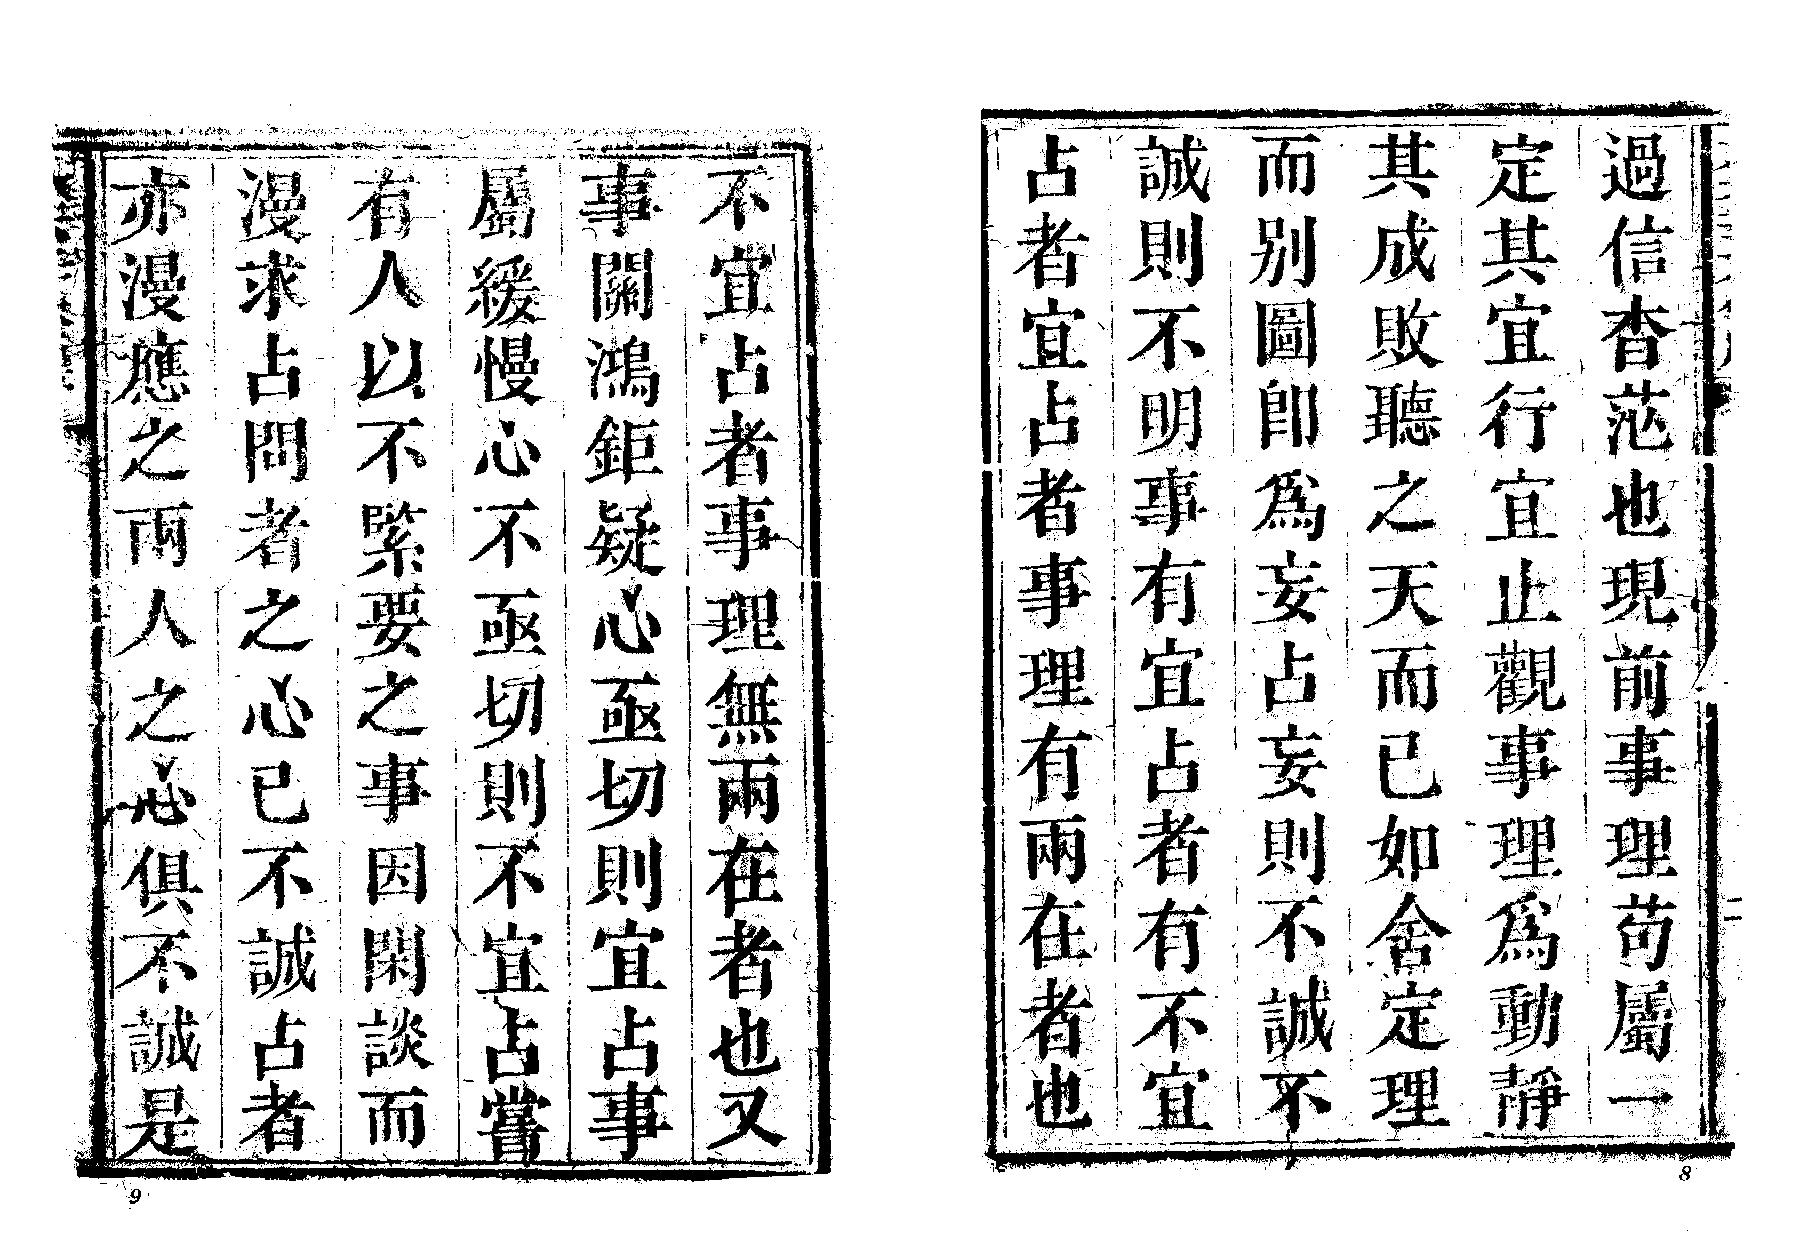 過信杳茫也現前事理苟屬一
定其宜行宜止觀事理爲動靜
其成敗聽之天而已如舍定理
而别圖卽爲妄占妄則不誠不
誠則不明事有宜占者有不宜
占者宜占者事理有兩在者也
8
不宜占者事理無兩在者也又
事關鴻鉅疑心亟切則宜占事
屬緩慢心不亟切則不宜占嘗
有人以不緊要之事因閑談而
漫求占問者之心已不誠占者
亦漫應之兩人之心俱不誠是
9